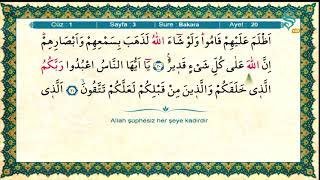 Cüz : 1 Sayfa : 3 Sure : Bakara Ayet : 20
اَظْلَمَ عَلَيْهِمْ قَامُواۜ وَلَوْ شَٓاءَ اللّٰهُ لَذَهَبَ بِسَمْعِهِمْ وَاَبْصَارِهِمْۜ
اِنَّ اللّٰهَ عَلٰى كُلِّ شَيْءٍ قَد۪يرٌ۟ ﴿٢٠﴾ يَٓا اَيُّهَا النَّاسُ اعْبُدُوا رَبَّكُمُ
الَّذ۪ي خَلَقَكُمْ وَالَّذ۪ينَ مِنْ قَبْلِكُمْ لَعَلَّكُمْ تَتَّقُونَۙ ﴿٢١﴾ اَلَّذ۪ي
Allah şüphesiz her şeye kadirdir